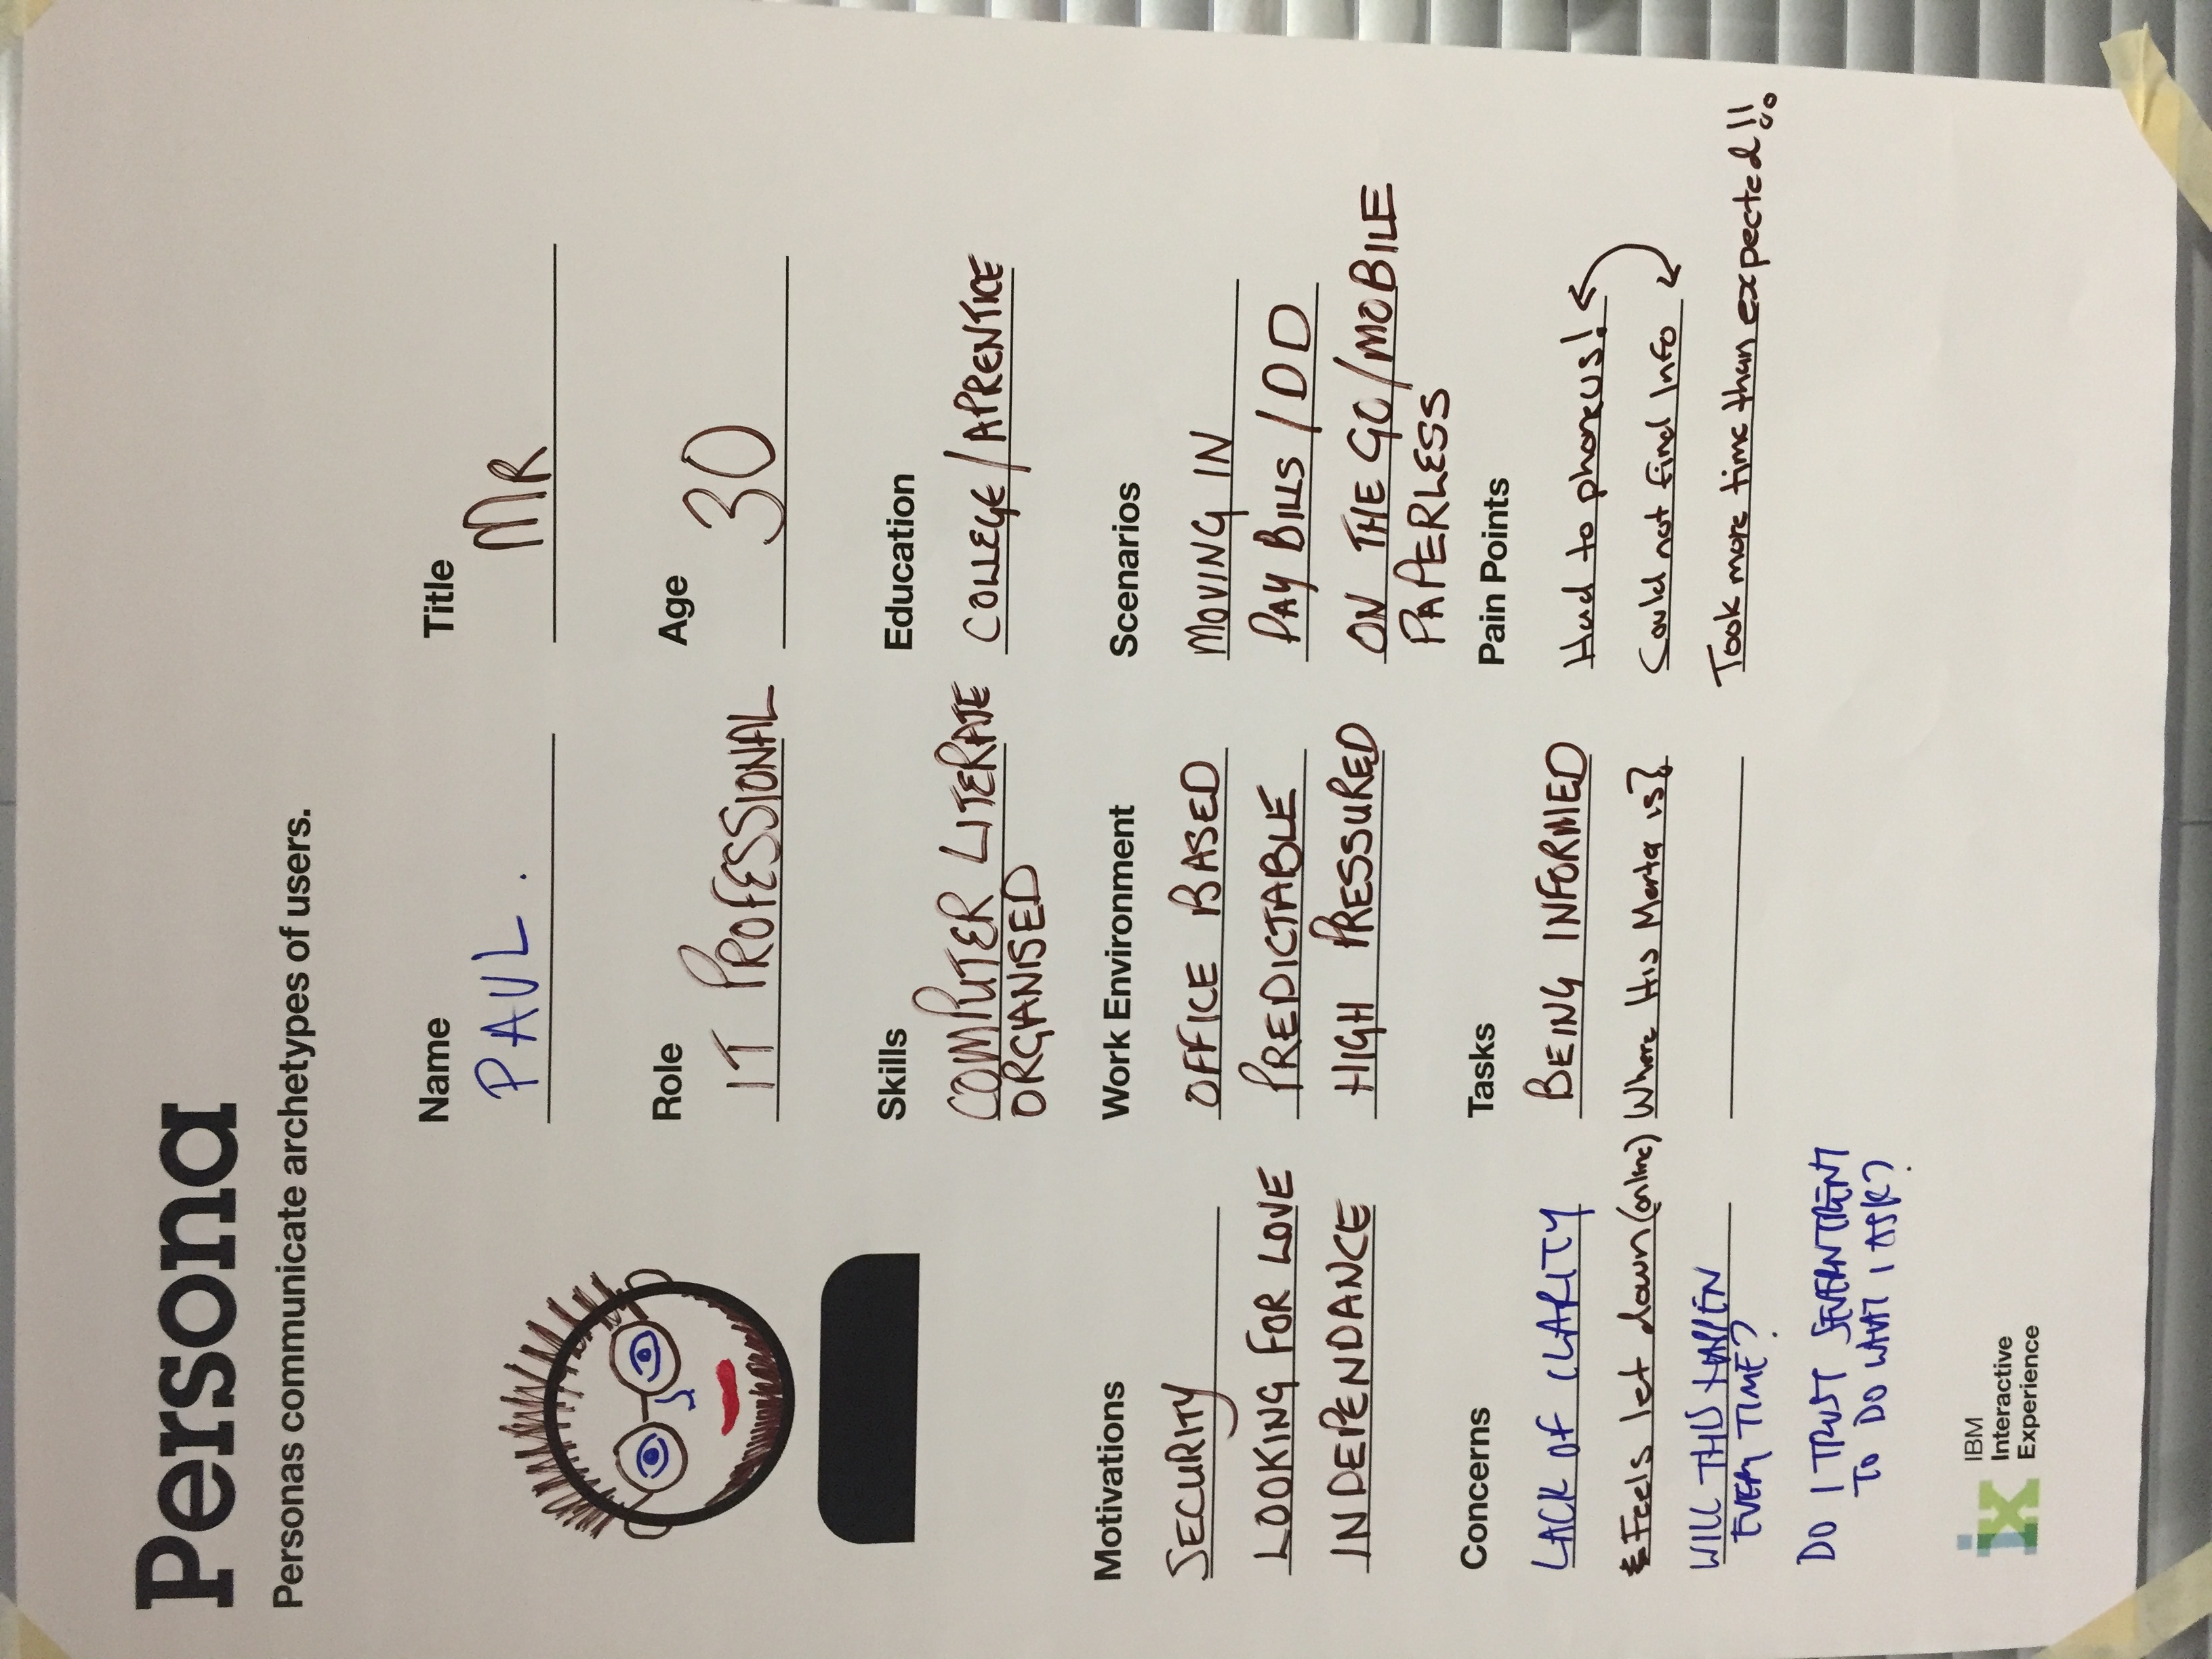 Persona
Personas communicate archetypes of users.
Name
PAUL.
Title
MR
Role
IT PROFESSIONAL
Age
30
Skills
COMPUTER LITERATE
ORGANISED
Education
COLLEGE/APRENTICE
Motivations
SECURITY
LOOKING FOR LOVE
INDEPENDANCE
Work Environment
OFFICE BASED
PREDICTABLE
HIGH PRESSURED
Scenarios
MOVING IN
PAY BILLS / DD
ON THE GO/MOBILE
PAPERLESS
Concerns
LACK OF CLARITY
Feels let down (online)
WILL THIS HAPPEN
EVERY TIME?
DO I TRUST SEVERN TRENT
TO DO WHAT I ASK?
Tasks
BEING INFORMED
Where His is?
Pain Points
Had to phone us!
Could not find Info
Took more time than expected!!
ix
IBM
Interactive
Experience